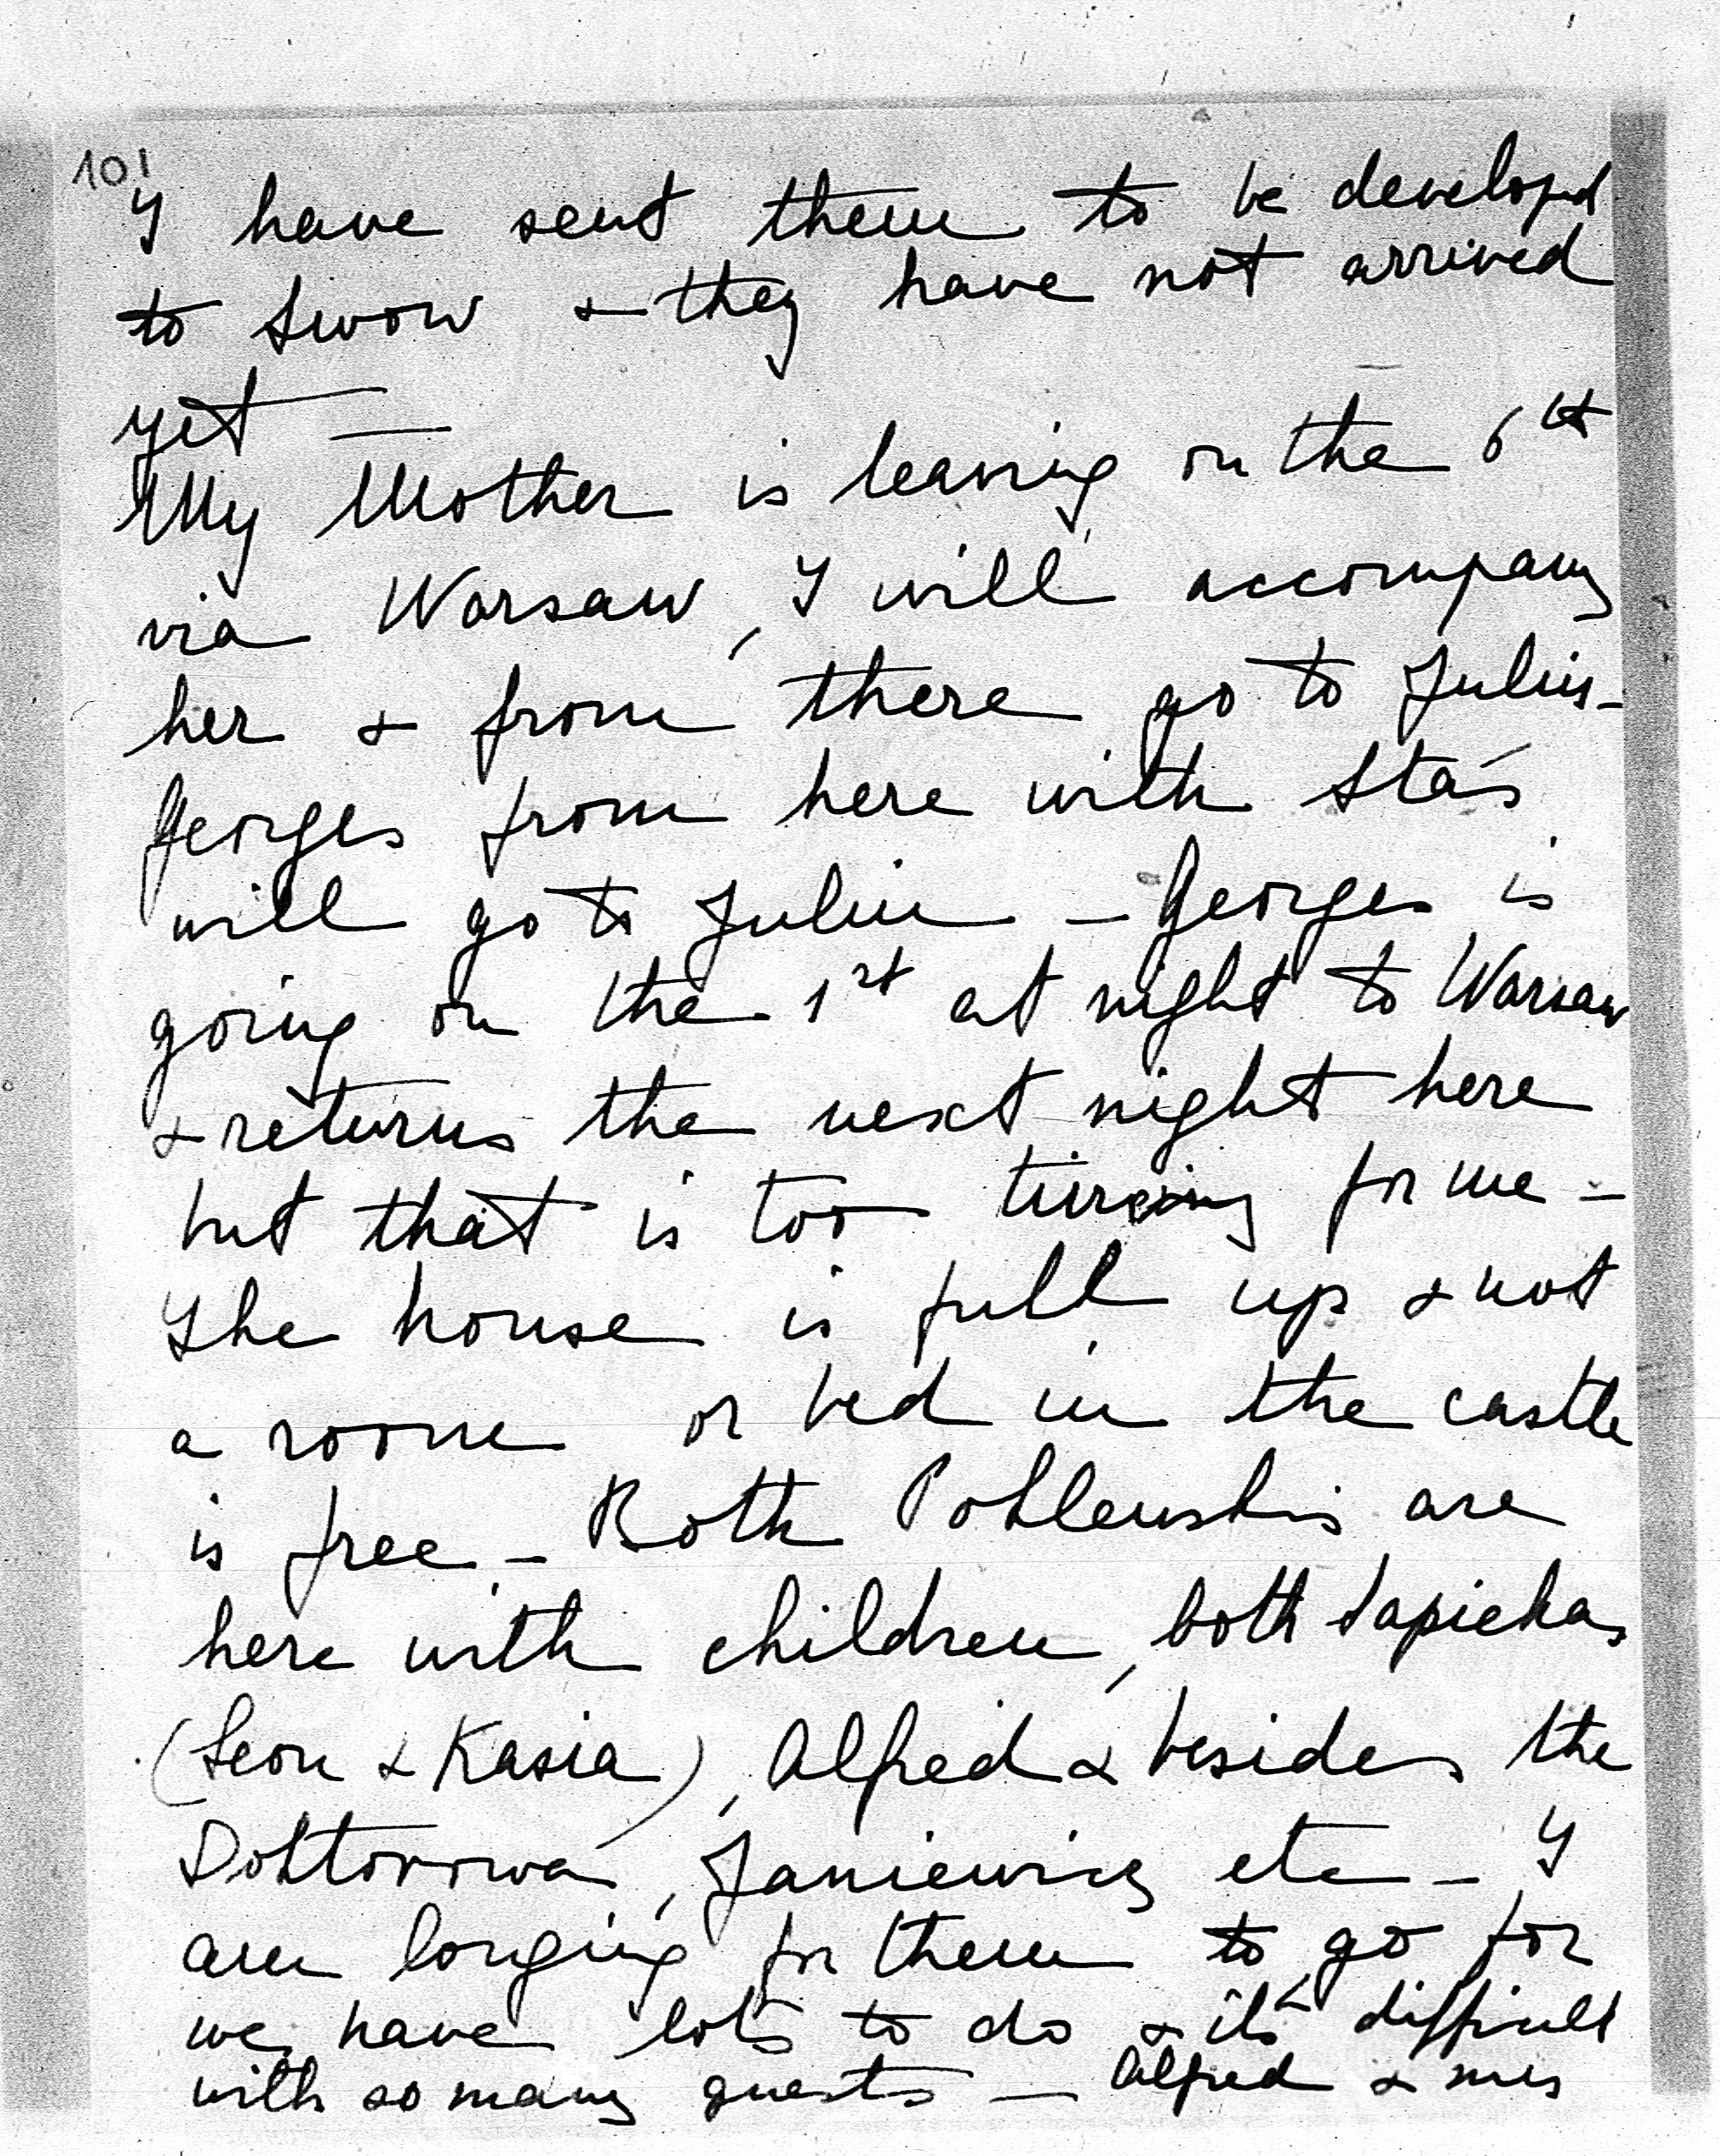 10!
I have sent them to be developed
to Lwow & they have not arrived
yet —
My Mother is leaving on the 6th
via Warsaw, I will accompany
her & from there go to Julin –
Georges from here with Staś
will go to Julin – Georges is
going on the 1st at night to Warsaw
& returns the next night here
but that is too tireing for me –
The house is full up & not
a room or bed in the castle
is free – Both Pohlewskis are
here with children, both Sapiehas
(Leon & Kasia), Alfred & besides the
Doktorowa, Janiewicz etc – I
am longing for them to go for
we have lots to do & it's difficult
with so many guests — Alfred &